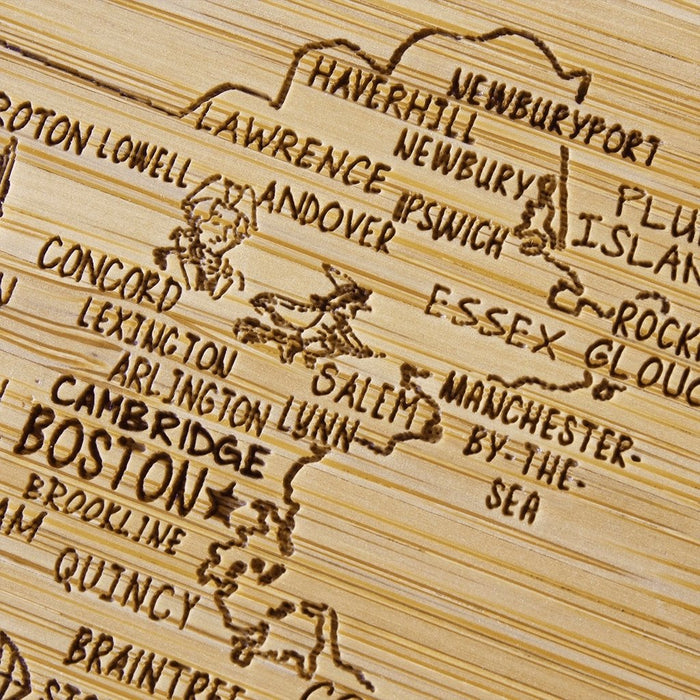 NEWBURYPORT
HAVERHILL
LAWRENCE
NEWBURY
PLU
ISLAN
ROTON
LOWELL
ANDOVER
IPSWICH
CONCORD
ESSEX
ROCK
GLOU
LEXINGTON
ARLINGTON
SALEM
MANCHESTER-
BY-THE-
SEA
LYNN
CAMBRIDGE
BOSTON
BROOKLINE
AM
QUINCY
BRAINTREE